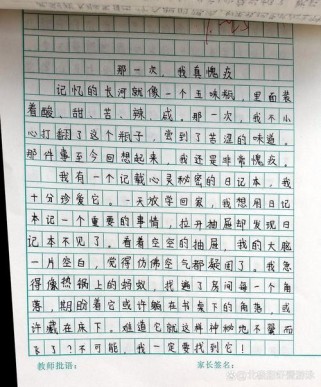 那一次，我真愧疚
记忆的长河就像一个五味瓶，里面装
着酸、甜、苦、辣、咸。那一次，我不小
心打翻了这个瓶子，尝到了苦涩的味道。
那件事至今回想起来，我还是非常愧疚。
我有一个记载心灵秘密的日记本，我
十分珍爱它。一天放学回家，我想用日记
本记一个重要的事情，拉开抽屉却发现日
记本不见了。看着空空的抽屉，我的大脑
一片空白，觉得仿佛空气都凝固了。我急
得像热锅上的蚂蚁，找遍了房间每一个角
落，期盼着它或许躺在书桌下的角落，或
许藏在床下。难道它就这样神秘地不翼而
飞了？不可能，我一定要找到它！
教师批语：
家长签名：